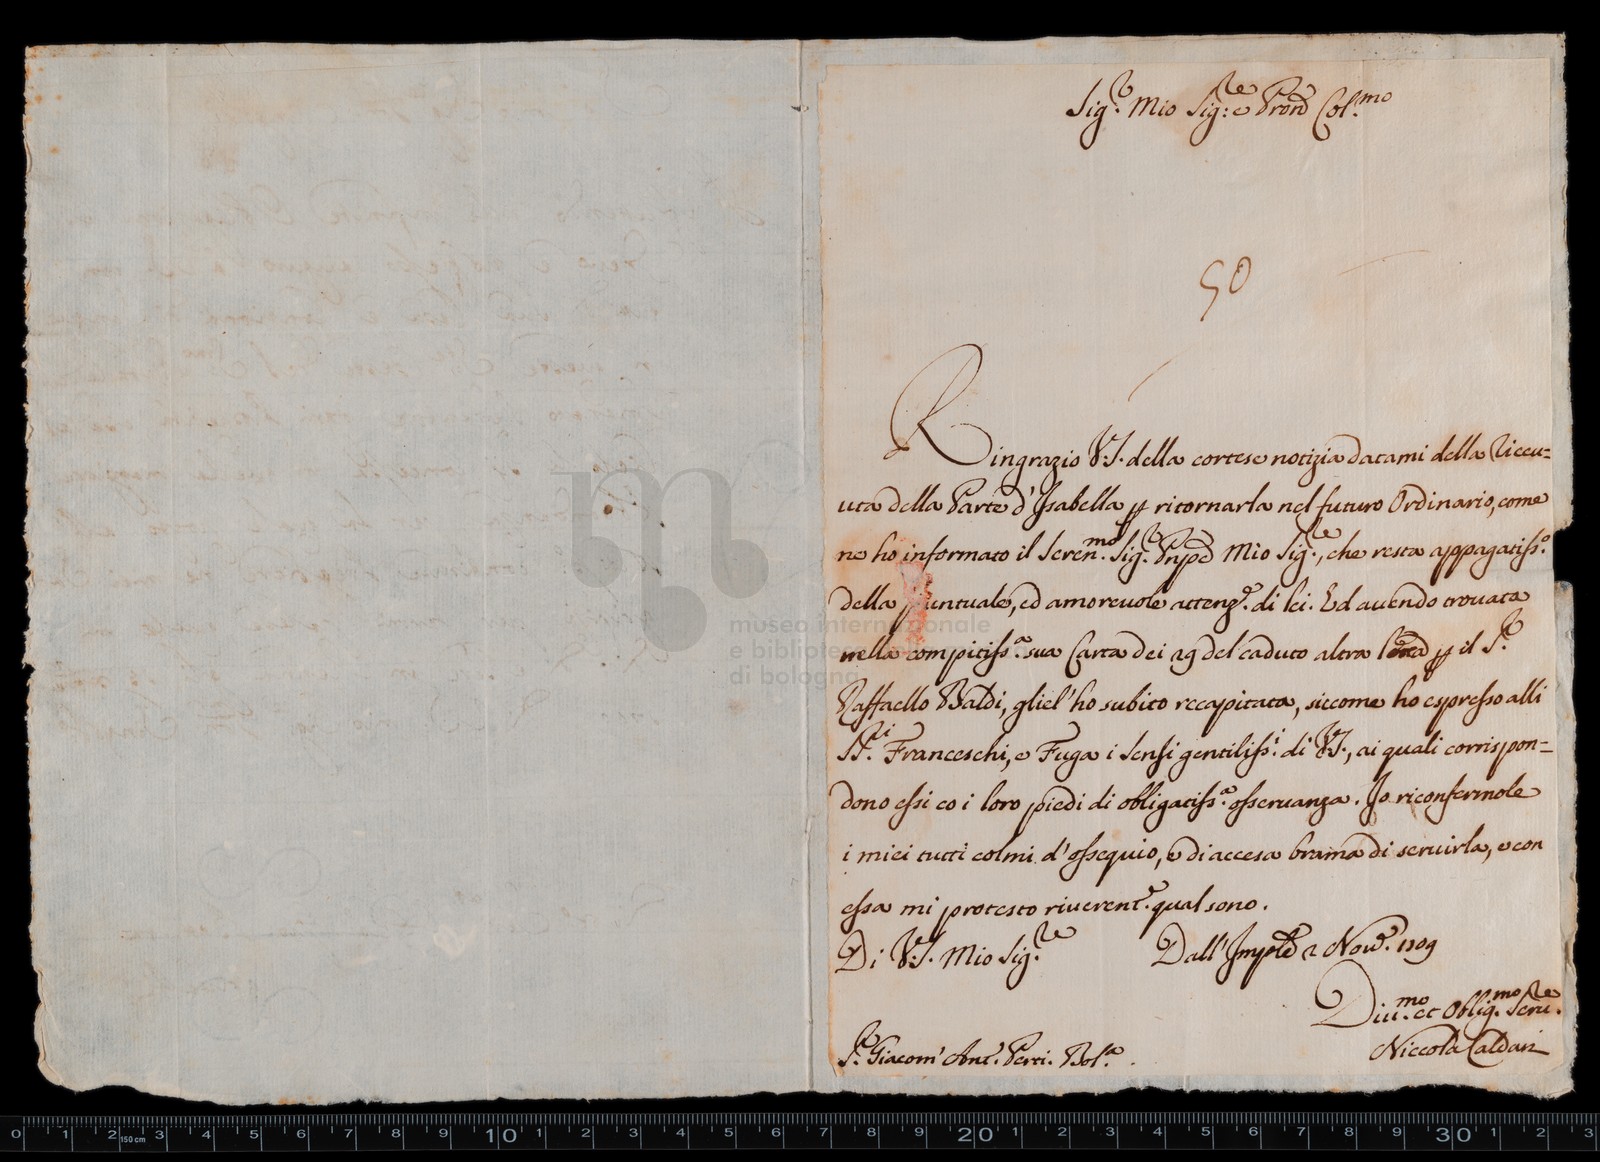 Sig.e Mio Sig:re e Pron Col.mo
50
Ringrazio V.S. della cortese notizia datami della riceu=
uta della Parte d'Isabella p ritornarla nel futuro Ordinario, come
ne ho informato il Seren.mo Sig.e Pnpe Mio Sig.re, che resta appagatiss.o
della puntuale, ed amoreuole attenz.e di lei. Ed auendo trouata
nella compitiss.a sua Carta dei 29 del caduto altra p il S.e
Raffaello Baldi, gliel'ho subito recapitata, siccome ho espresso alli
SS.ri Franceschi, e Fuga i sensi gentiliss.i di V.S., ai quali corrispon=
dono essi co i loro piedi di obligatiss.a osseruanza. Io riconfermole
i miei tutti colmi d'ossequio, e di accesa brama di seruirla, e con
essa mi protesto riuerent.e qual sono.
Di V.S. Mio Sig.re Dall'Imple 2 Nou.e 1709
Diu.mo et Oblig.mo Seru.re
Niccola Caldari
S.e Giacom' Ant.o Perti. Bol.a
museo internazionale
e biblioteca
di bologna